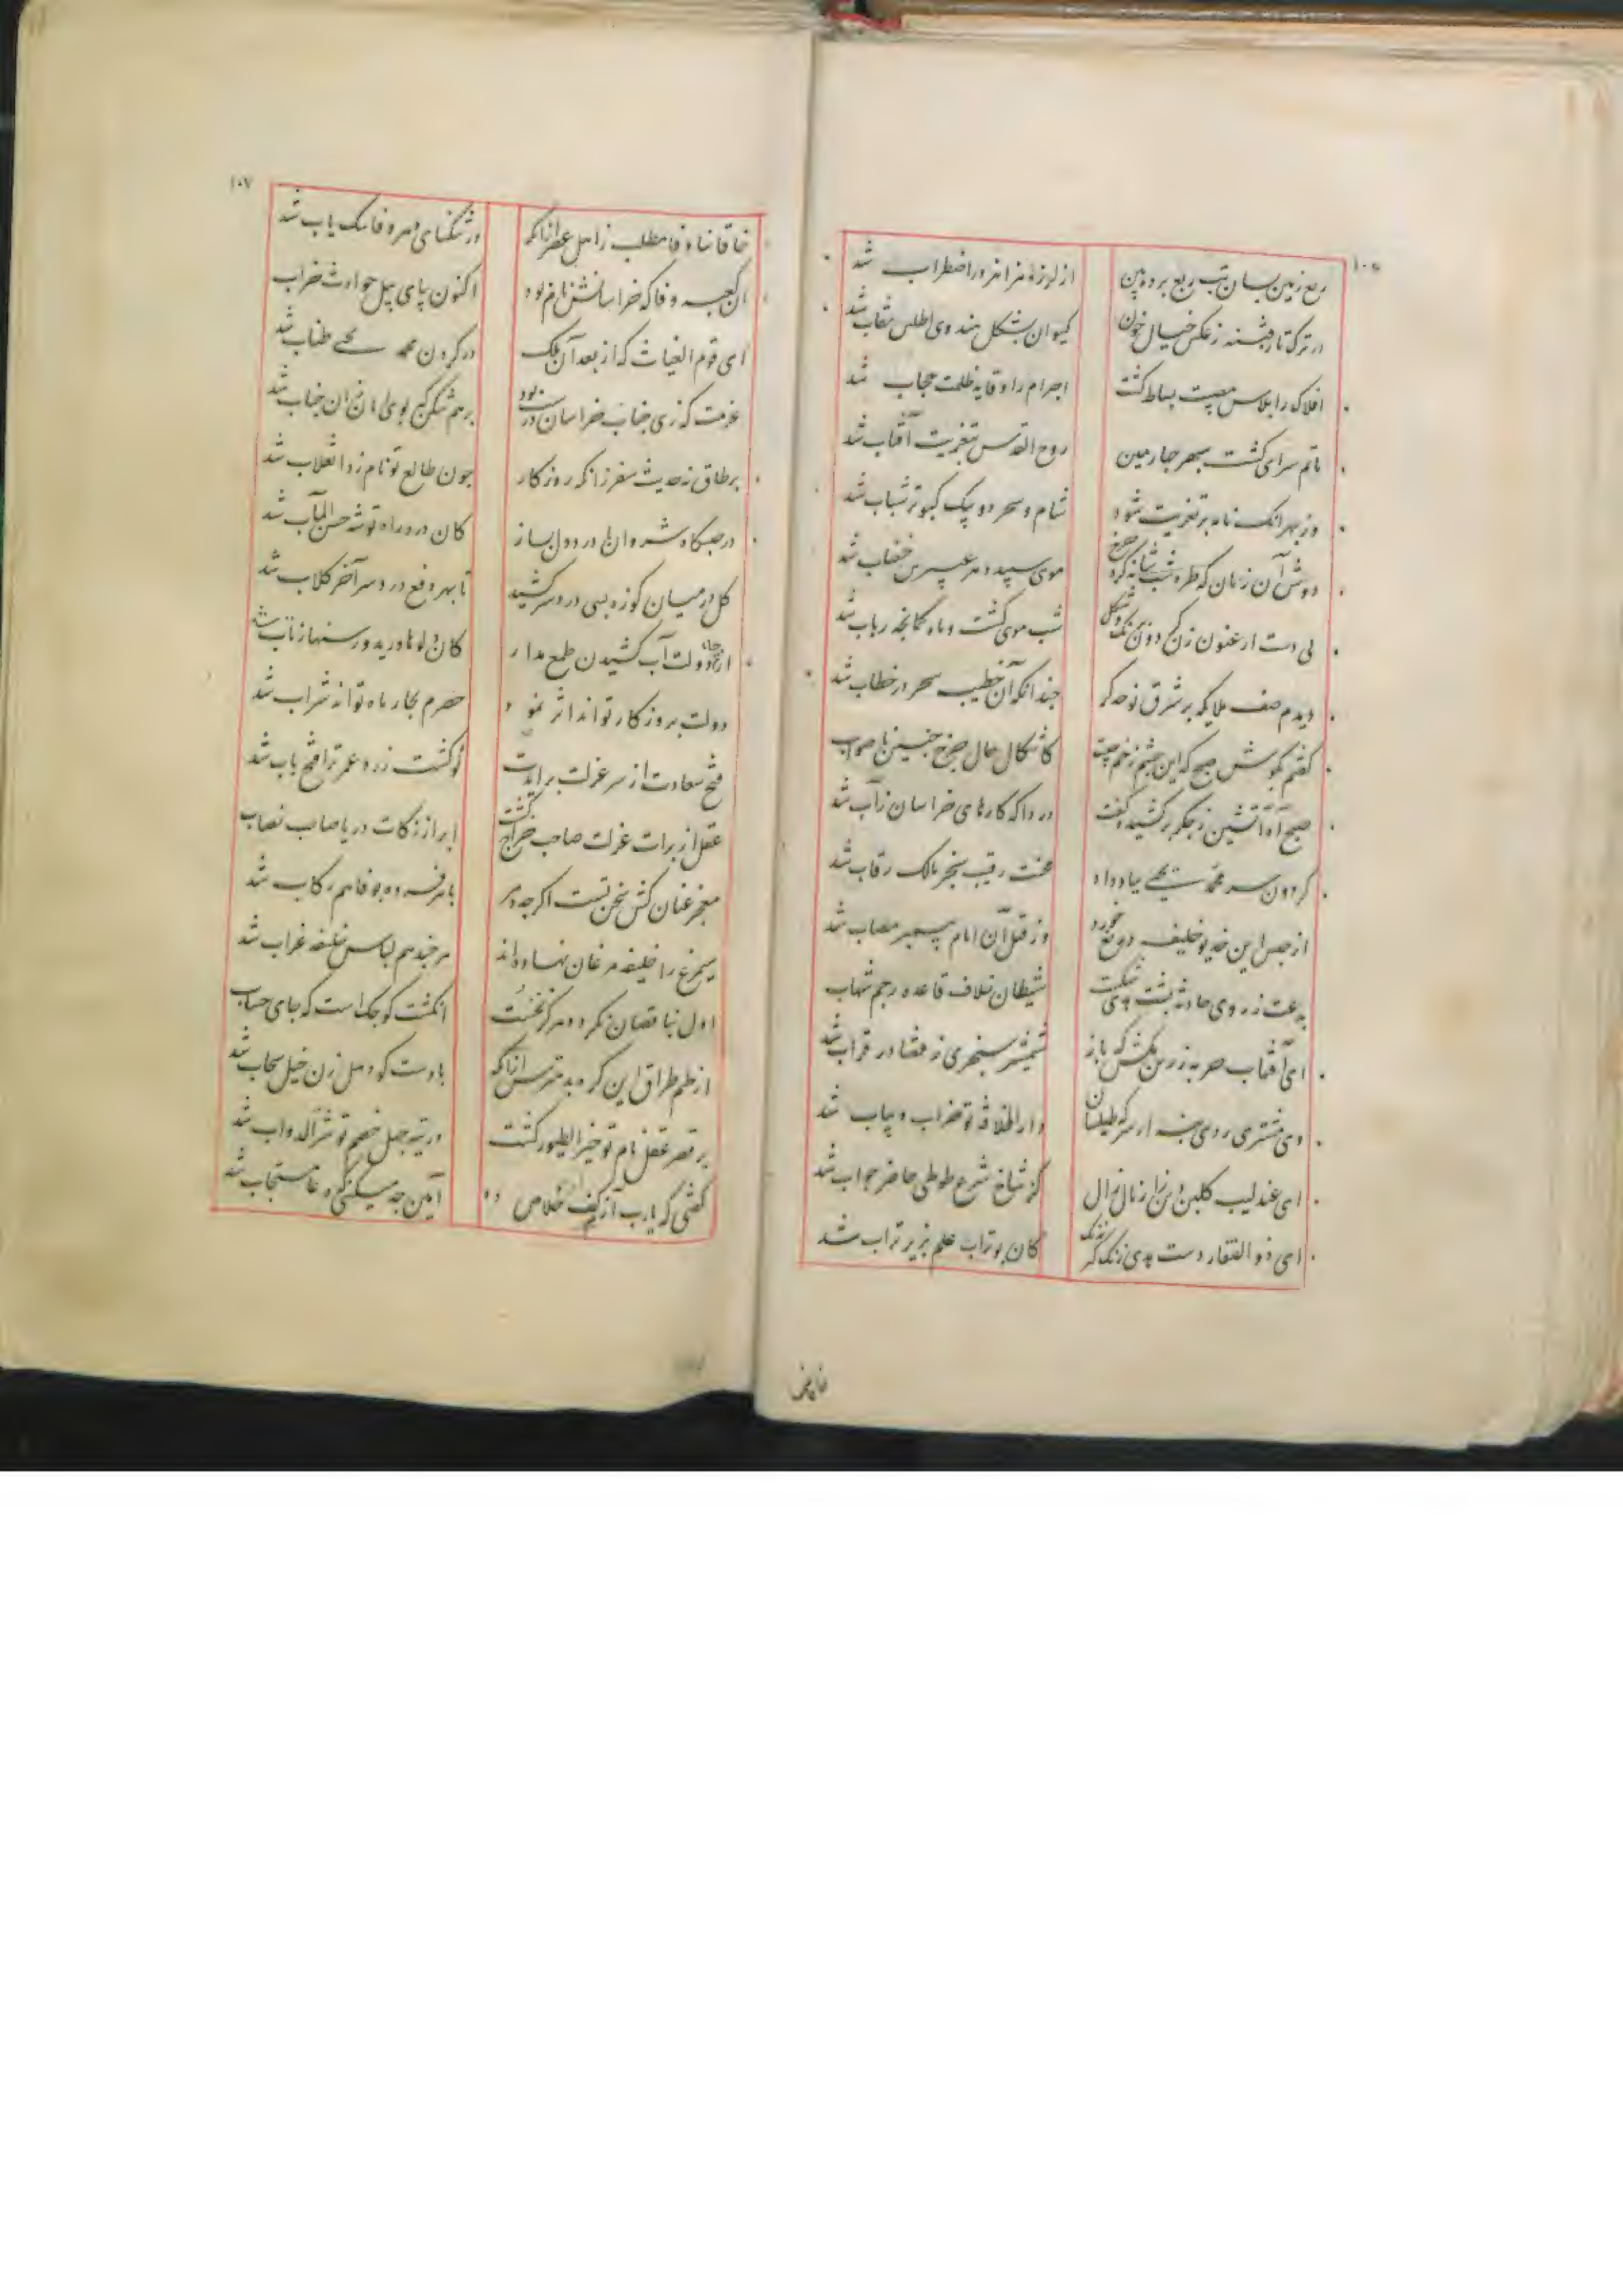 ربع زمین بسان تب ربع برده بین
از لرزه هزاهز در اضطراب شد
در ترکتاز فتنه ز عکس خیال خون
کیوان بشکل هندوی اطلس نقاب شد
افلاک را پلاس مصیبت بساط گشت
اجرام را وقایه ظلمت حجاب شد
ماتم سرای گشت سپهر چارمین
روح القدس تعزیت آفتاب شد
وز بهر آنک نامه بر تعزیت شود
شام و سحر دو پیک کبوتر شتاب شد
دوش آن زمان که طره شب شانه کرد چرخ
موی سپید دهر عبیرین خضاب شد
بی دست ارغنون زن گردون برنگ و شکل
شب موی گشت و ماه کمانچه رباب شد
دیدم صف ملایکه بر شرق نوحه گر
چندانکه آن خطیب سحر در خطاب شد
گفتم بگوش صبح که این چشم زخم چیست
کاشکال حال چرخ چنین ناصواب شد
صبح آه آتشین ز جگر برکشید و گفت
دردا که کارهای خراسان ز آب شد
گردون سر محمد یحیی بباد داد
محنت رقیب سنجر مالک رقاب شد
از حبس این خدیو خلیفه دریغ خورد
وز قتل آن امام پیمبر مصاب شد
بدعت ز روی حادثه پشت هدی شکست
شیطان خلاف قاعده رجم شهاب شد
ای آفتاب حربه زرین مکش که باز
شمشیر سنجری ز قضا در قراب شد
وی مشتری ردا بنه از سر که طیلسان
دار الخلافه تو خراب و یباب شد
ای عندلیب گلبن دین زار نال زار
کز شاخ شرع طوطی حاضر جواب شد
ای ذوالفقار دست هدی زنگ گیر زنگ
کان بوتراب علم بزیر تراب شد
خاقانیا وفا مطلب ز اهل عصر از آنک
در تنگنای دهر وفا تنگ یاب شد
آن کعبه وفا که خراسانش نام بود
اکنون بپای پیل حوادث خراب
ای قوم الغیاث که از بعد آن ملک
در گردن محمد یحیی طناب شد
عزمت که زی جناب خراسان درست بود
برهم شکن که بوی امان زان جناب شد
بر طاق نه حدیث سفر زانکه روزگار
چون طالع تو نامزد انقلاب شد
در حبسگاه شروان با درد دل بساز
کان درد راه توشه حسن المآب شد
گل در میان کوزه بسی درد سر کشید
تا بهر دفع درد سر آخر گلاب شد
از چاه دولت آب کشیدن طمع مدار
کان دلوها درید و رسنها ز تاب شد
دولت بروزگار تواند اثر نمود
حصرم بچار ماه تواند شراب شد
فتح سعادت از سر عزلت برآیدت
کو گشت زرد عمر ترا فتح باب شد
عقل از برات عزلت صاحب خراج گشت
ابر از زکات دریا صاحب نصاب
معجز عنان کش سخن تست اگر چه دهر
با هر فسرده بوفا هم رکاب شد
سیمرغ را خلیفه مرغان نهاده اند
هر چند هم لباس خلیفه غراب شد
اول بناقصان نگرد دهر کز نخست
انگشت کوچک است که جای حساب
از طمطراق این گره بد مترس از آنک
بادست کو دهل زن خیل سحاب شد
بر قصر عقل نام تو خیر الطیور گشت
در تیه جهل خصم تو شر الدواب شد
گفتی که یارب از کف آزم خلاص ده
آمین چه میکنی که دعا مستجاب شد